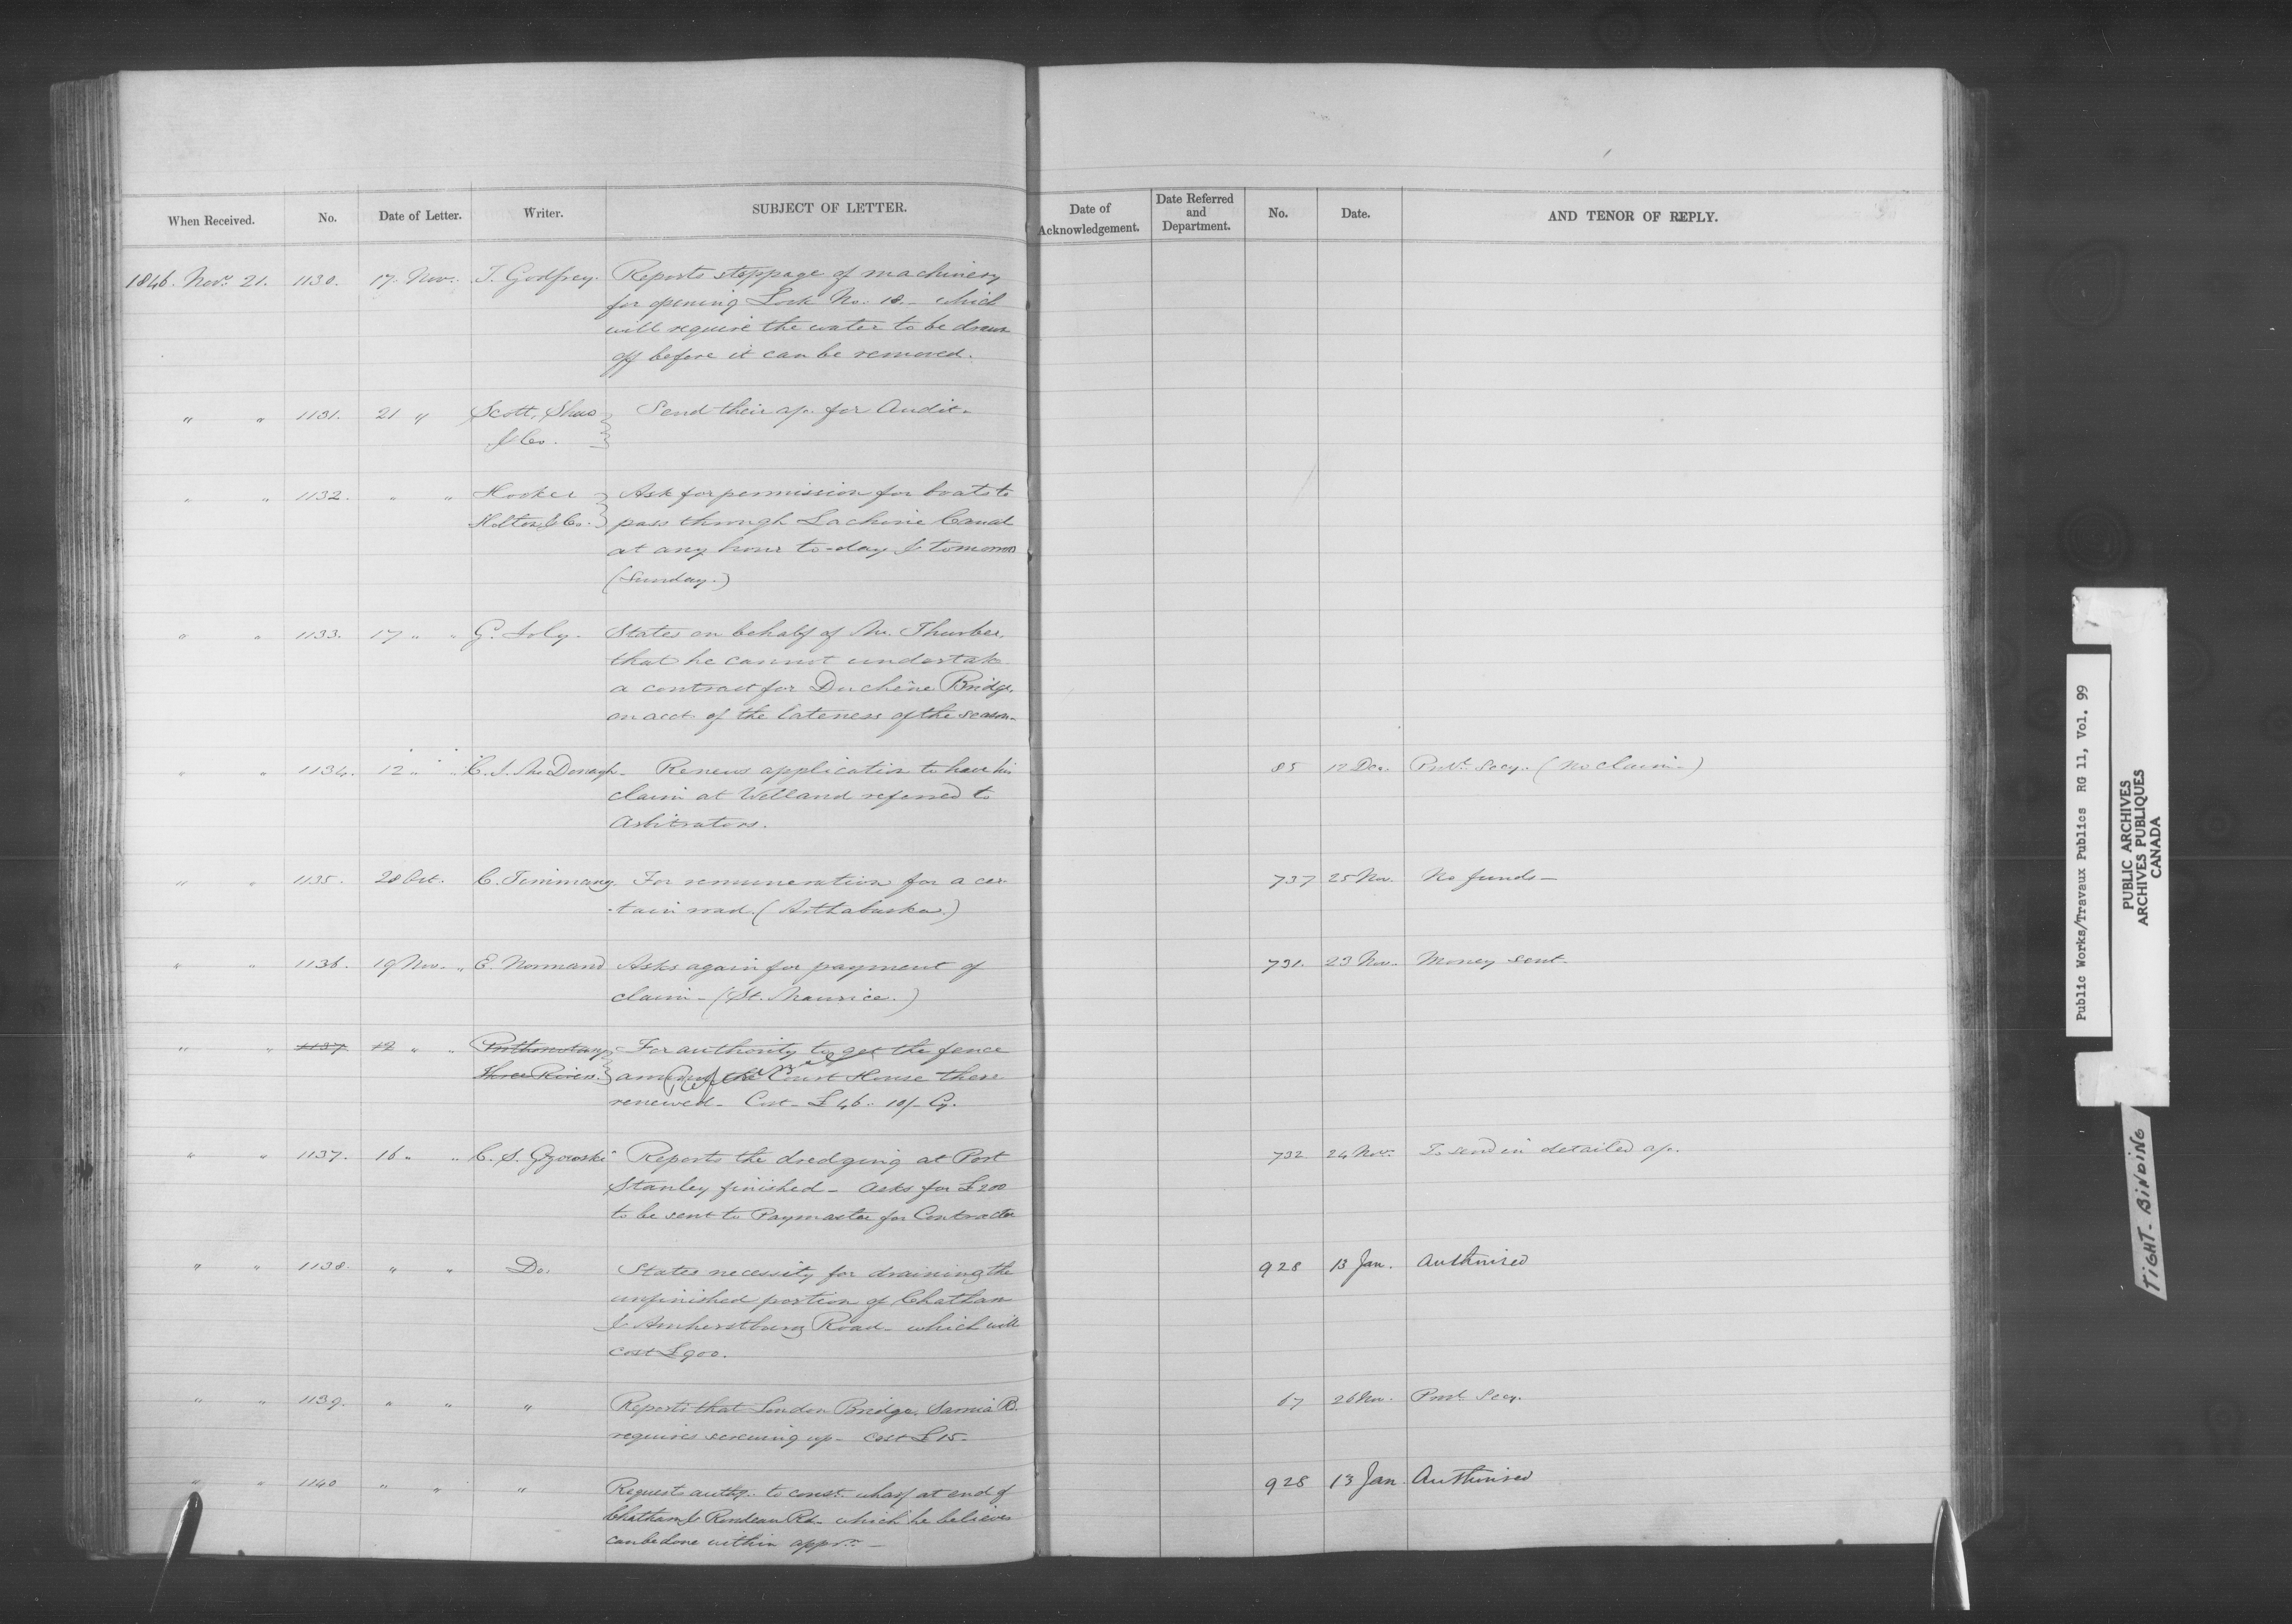 When Received. No. Date of Letter. Writer. SUBJECT OF LETTER. Date of Acknowledgement. Date Referred and Department. No. Date. AND TENOR OF REPLY.
1846. Novr. 21. 1130. 17. Nov. T. Godfrey. Reports stoppage of machinery
for opening Lock No. 18. - which
will require the water to be drawn
off before it can be removed.
" " 1131. 21 " Scott, Shaw Send their a/c. for Audit.
& Co.
" " 1132. " " Hooker Ask for permission for boats to
Holton & Co. pass through Lachine Canal
at any hour to-day & tomorrow
(Sunday.)
" " 1133. 17 " " G. Joly. States on behalf of Mr. Thurber,
that he cannot undertake
a contract for Duchêne Bridge,
on acct. of the lateness of the season-
" " 1134. 12 " " C. J. McDonagh - Renews application to have his 85 12 Dec. Provl. Secy. (No claim -)
claim at Welland referred to
Arbitrators.
" " 1135. 28 Oct. C. Timmany. For remuneration for a cer- 737 25 Nov. No funds -
-tain road. (Arthabaska.)
" " 1136. 19 Nov. " E. Normand Asks again for payment of 731. 23 Nov. Money sent.
claim - (St. Maurice.)
" " 1137. 12 " " Prothonotary For authority to get the fence
Three Rivers. around the Court House there
renewed - Cost - £46.. 10/- Cy.
" " 1137. 16 " " C. S. Gzowski Reports the dredging at Port 732 24 Nov. To send in detailed a/c.
Stanley finished - Asks for £200
to be sent to Paymaster for Contractor
" " 1138. " " Do. States necessity for draining the 928 13 Jan. Authorised
unfinished portion of Chatham
& Amherstburg Road - which will
cost £900.
" " 1139. " " " Reports that London Bridge, Sarnia R. 67 26 Nov. Provl. Secy.
requires screwing up - Cost £15-
" " 1140 " " " Requests authy. to const. wharf at end of 928 13 Jan Authorised
Chatham & Rondeau Rd. which he believes
can be done within apprn. -
Public Works/Travaux Publics RG 11, Vol. 99
PUBLIC ARCHIVES
ARCHIVES PUBLIQUES
CANADA
TIGHT-BINDING